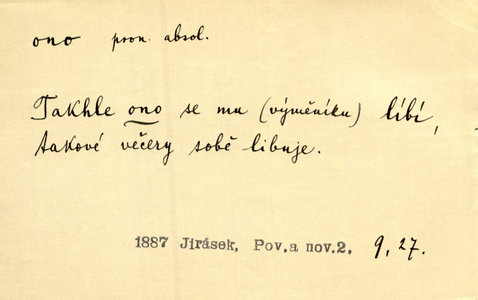 ono pron. absol.
Takhle ono se mu (výměníku) líbí,
takové věčery sobě libuje.
1887 Jirásek, Pov.a nov.2. 9, 27.